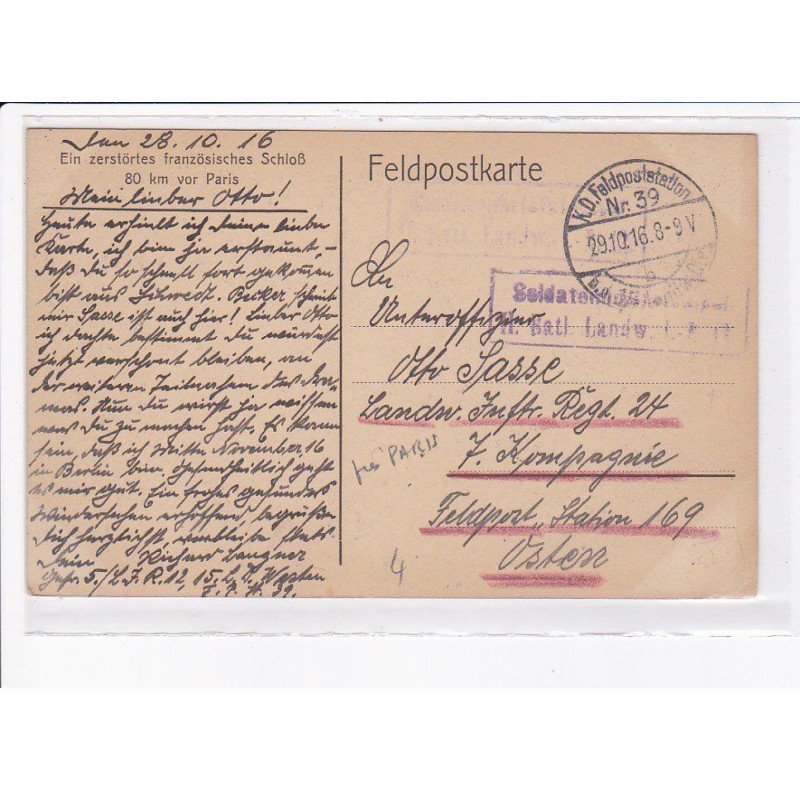 Den 28. 10. 16
Ein zerstörtes französisches Schloß
80 km vor Paris
Mein lieber Otto!
Heute erhielt ich deine liebe
Karte, ich bin ja erstaunt,
daß du so schnell fort gekommen
bist aus Schwedt. Becker, scheint
mir Sasse ist auch hier! Lieber Otto
ich dachte bestimmt du würdest
jetzt verschont bleiben, an
der weiteren Teilnahme des Dra-
mas. Nun du wirst ja wissen
was du zu machen hast. Es kann
sein, daß ich Mitte November 16
in Berlin bin. Gesundheitlich geht
es mir gut. Ein frohes gesundes
Wiedersehen erhoffend, begrüßt
dich herzlichst, verbleibe stets
Dein Richard Langner
Gefr. 5./L.I.R. 12, 15. L. D. Westen
39.
Feldpostkarte
K.D. Feldpoststation
Nr. 39
29.10.16. 8-9 V.
Soldaten
II. Batl. Landw.
An
Unteroffizier
Otto Sasse
Landw. Inftr. Regt. 24
7. Kompagnie
Feldpost „Station 169
Osten
près PARIS
4